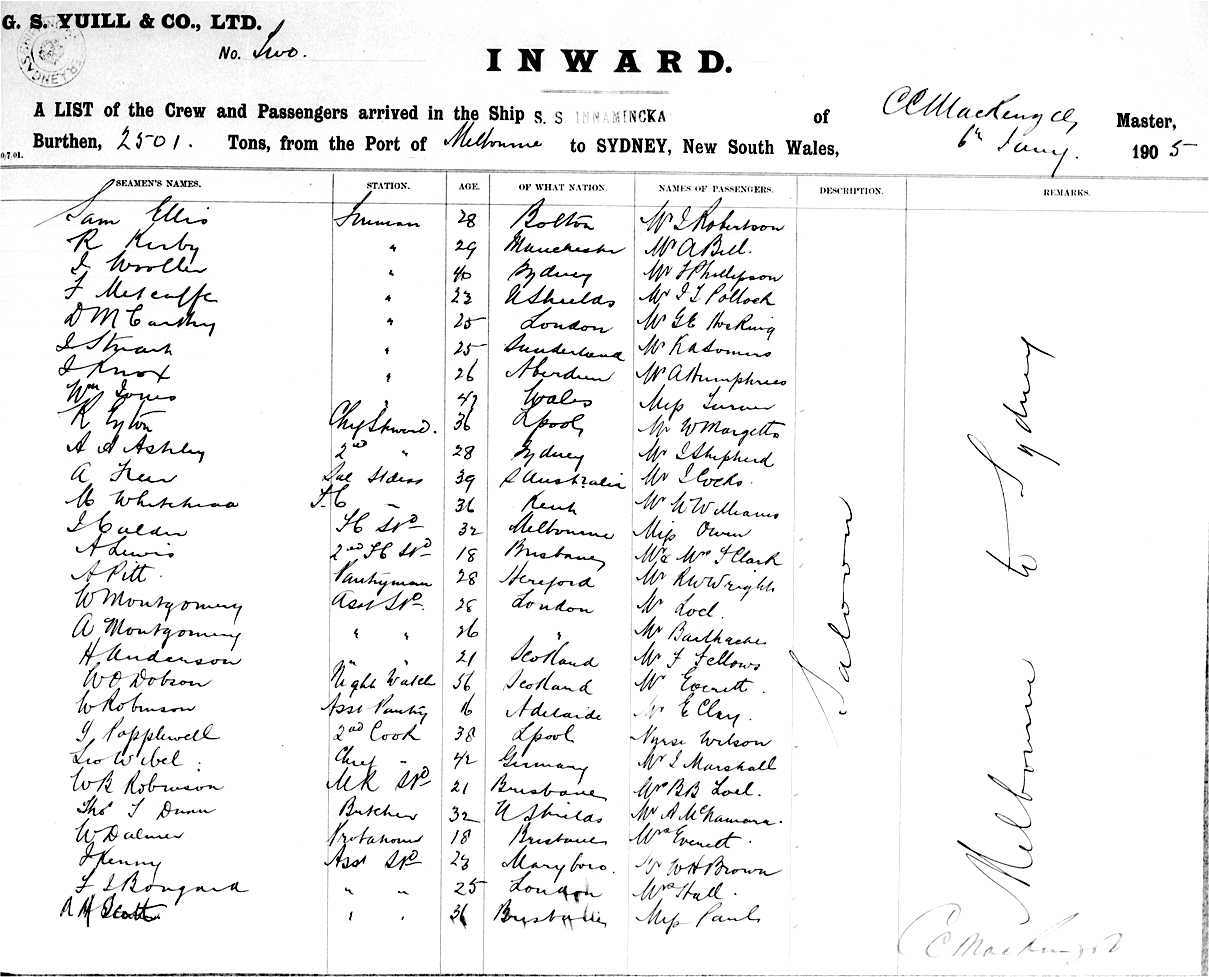 G. S. YUILL & CO., LTD.
No. Two.
INWARD.
A LIST of the Crew and Passengers arrived in the Ship S. S INNAMINCKA of CCMacKenzie, Master,
Burthen, 2501. Tons, from the Port of Melbourne to SYDNEY, New South Wales, 6th Jany. 1905
SEAMEN'S NAMES. STATION. AGE. OF WHAT NATION. NAMES OF PASSENGERS. DESCRIPTION. REMARKS.
Sam Ellis Fireman 28 Bolton Mr J Robertson
R Kirby " 29 Manchester Mr A Bell.
J Wooller " 40 Sydney Mr F Phillipson
F Metcalfe " 23 N Shields Mr J T Pollock
D McCarthy " 25 London Mr GE Hocking
J Stuart " 25 Sunderland Mr KASomers
J Knox " 26 Aberdeen Mr A Humphries
Wm Jones " 47 Wales Miss Turner
R Eyton Chief Steward. 36 Lpool Mr W Margetts
A A Ashley 2nd " 28 Sydney Mr J Shepherd
A Freer 39 S Australia Mr J Cocks.
M Whitehead 36 Kent Mr W Williams
J Calder 32 Melbourne Miss Owen
A Lewis 18 Brisbane Mr & Mrs F Clark
A Pitt. Pantryman 28 Hereford Mr RWWright
W Montgomery Asst Std. 28 London Mr Loel.
A Montgomery " " 26 " Mr
H Anderson " " 21 Scotland Mr F Fellows
W D Dobson Night Watch 56 Scotland Mr Everett.
W Robinson Asst Pantry 16 Adelaide Mr E Clay.
J Popplewell 2nd Cook 38 Lpool Nurse Wilson
Leo Wibel. Chief " 42 Germany Mr J Marshall
W B Robinson MR Std 21 Brisbane Mrs BB Loel.
Thos J Dunn Butcher 32 N Shields Mr A McNamara.
W Dalmer 18 Brisbane Mrs Everett.
J Kenny Asst Std 23 Maryboro. Mr W H Brown
F J Bongard " " 25 London Mrs Hall.
Scott 36 Brisbane Miss Paul
Saloon
Melbourne to Sydney
CCMacKenzie